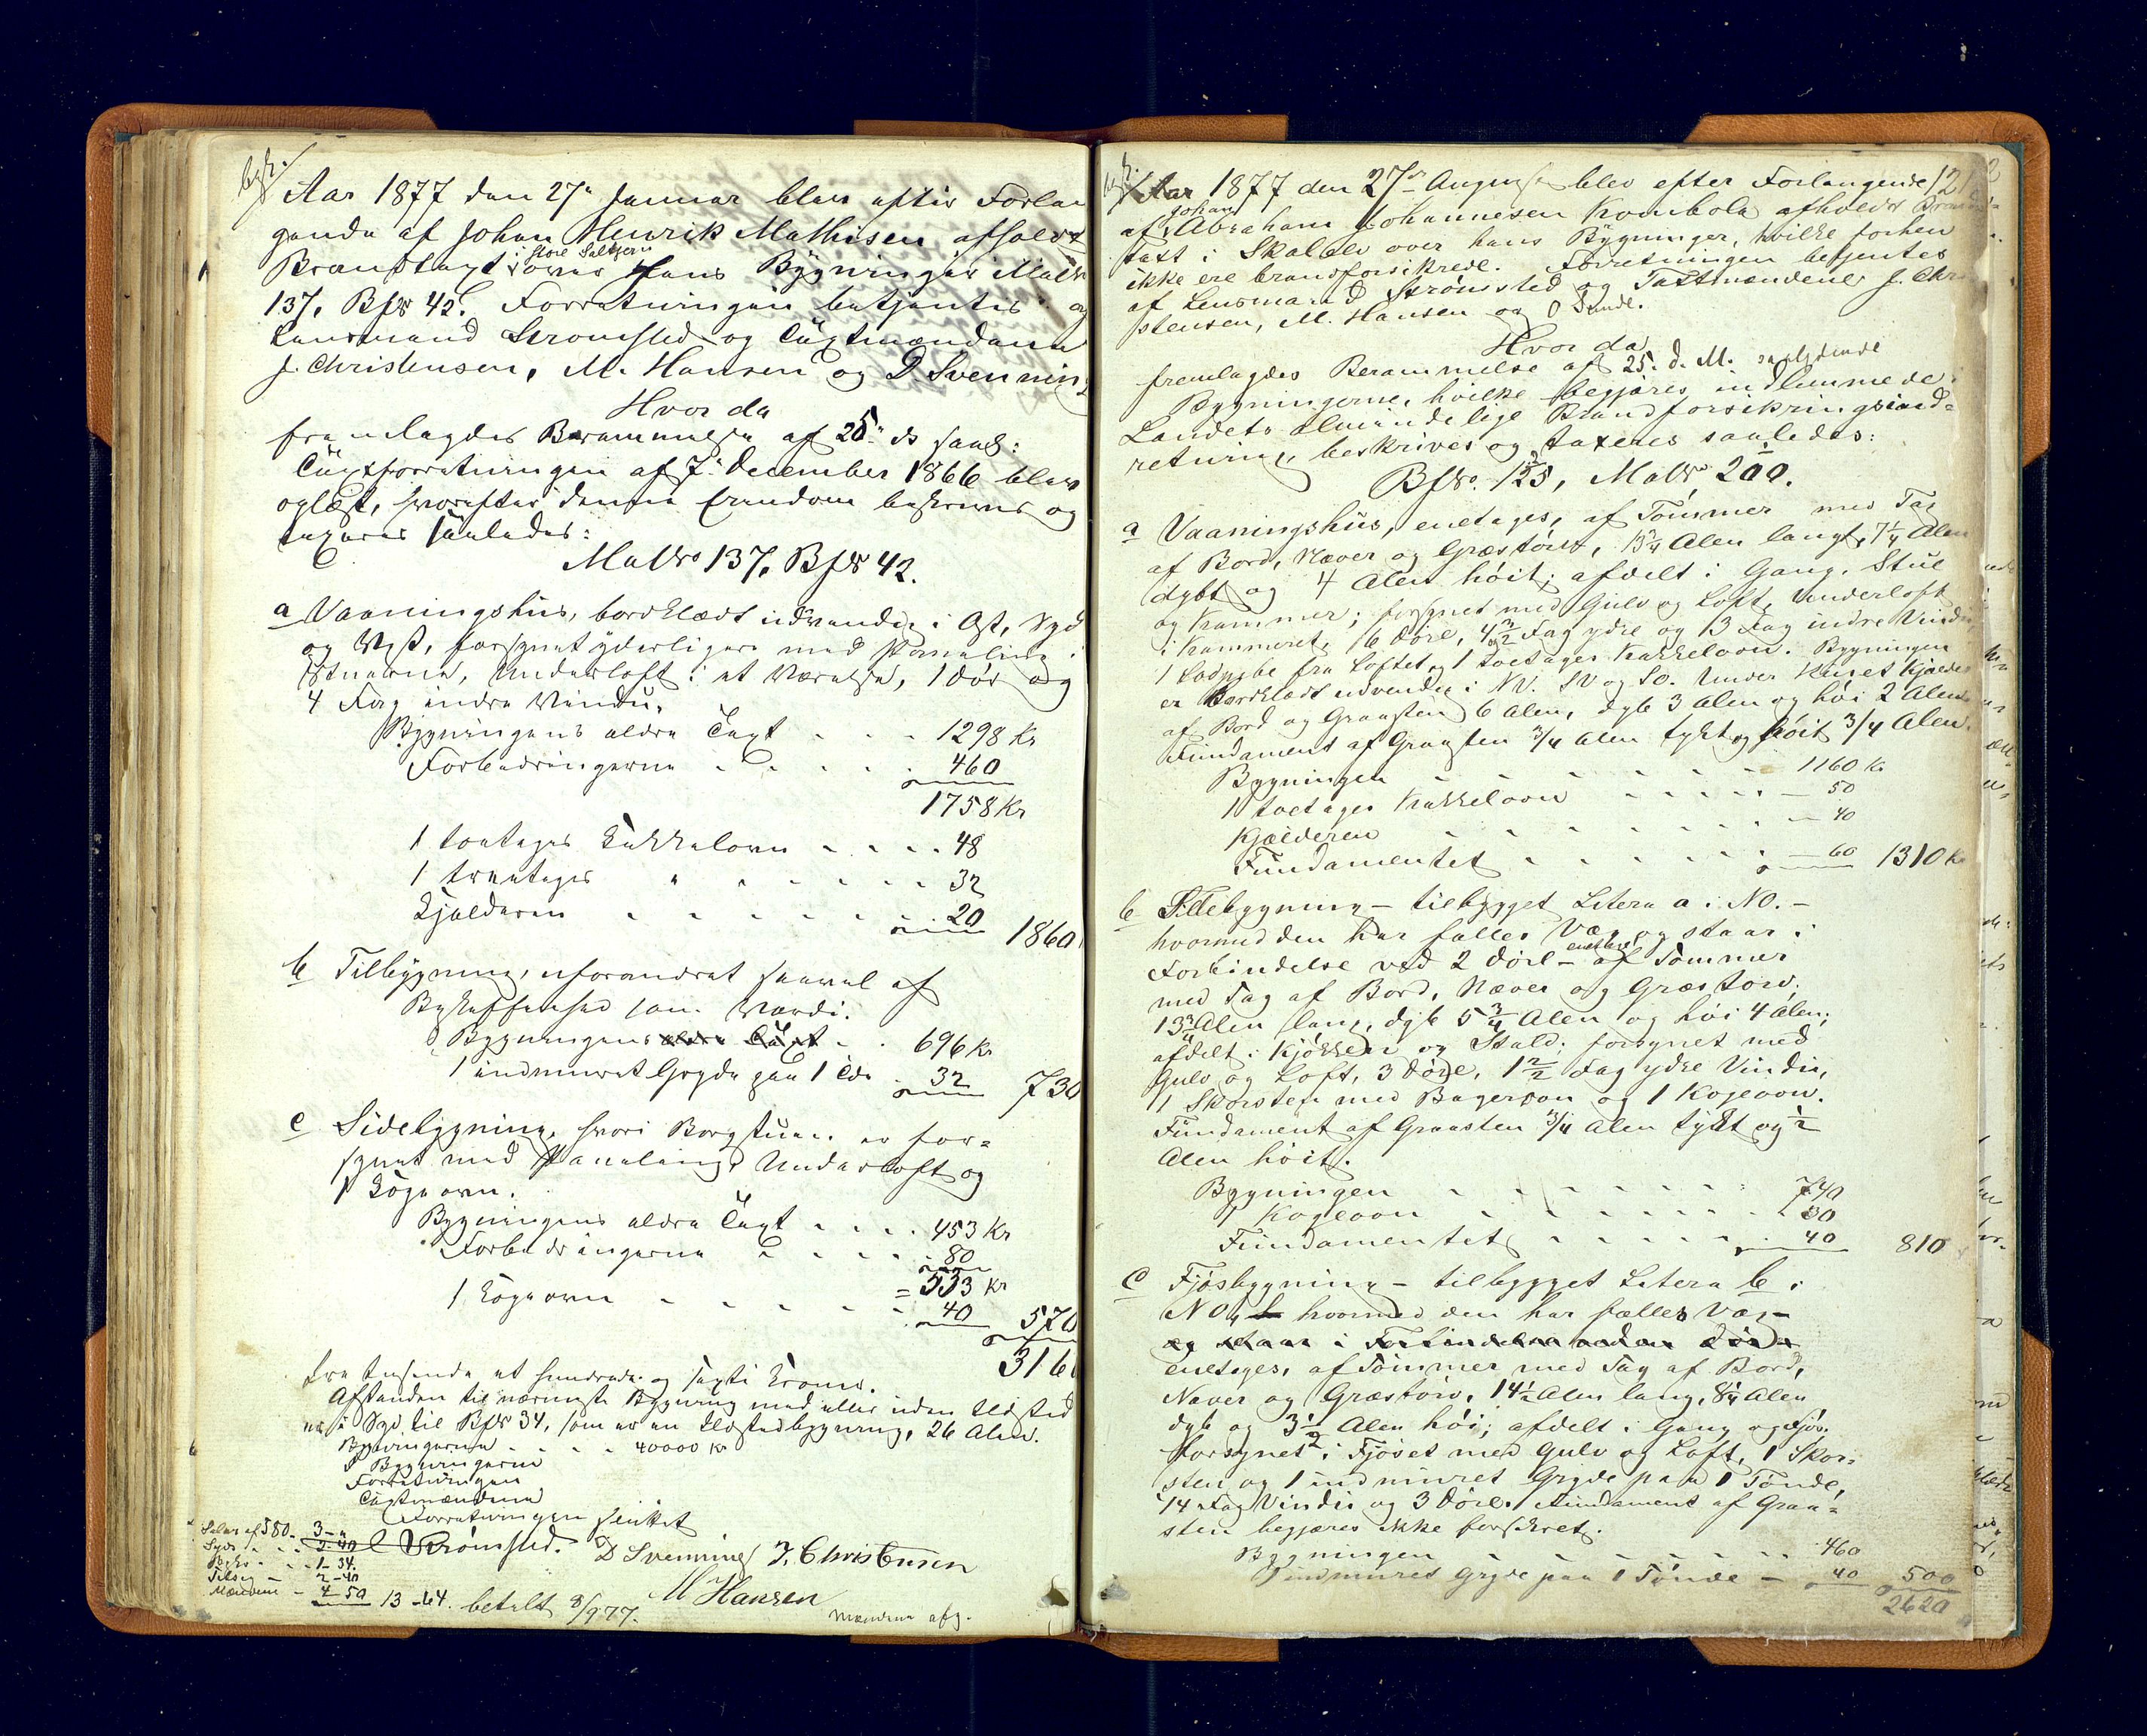 bgf.
Aar 1877 den 27de Januar blev efter Forlan
gende af Johan Henrik Mathisen afholdt
i Store Saltjern
Brandtaxt over hans Bygninger Matr
137, Bfr 42. Forretningen betjentes
Lensmand Strømsted og Taxtmændene
J. Christensen, M. Hansen og D. Svenning
Hvor da
fremlagdes Berammelse af 25de ds saal:
Taxtforretningen af 7de December 1866 blev
oplæst, hvorefter denne Eiendom beskrives og
taxeres saaledes:
MatNo 137, Bfr 42.
a Vaaningshus, bordklædt udvendig i Øst, Syd
og Vest, forsynet yderligere med Paneling i
Stuerne, Underloft i et Værelse, 1 Dør og
4 Fag indre Vinduer.
Bygningens ældre Taxt - - - 1298 Kr
Forbedringerne - - - - 460
1758 Kr
1 toetages Kakkelovn - - - - 48
1 treetages " - - - - - 32
Kjælderen - - - - - - 20 1860
b Tilbygning, uforandret saavel af
Beskaffenhed som Værdi.
Bygningens ældre Taxt - - 696 Kr
1 indmuret Gryde paa 1 Tde 32 730
c Sidebygning, hvori Borgstuen er for-
synet med Paneling, Underloft og
1 Kogeovn.
Bygningens ældre Taxt - - - - 453 Kr
Forbedringerne - - - - - 80
= 533 Kr
1 Kogeovn - - - - - - 40 570
316
tre tusende et hundrede og sexti Kroner.
Afstanden til nærmeste Bygning med eller uden Ildsted
er i Syd til Bfr 34, som er en Ildstedbygning, 26 Alen.
Bygningerne - - - - 40000 Kr
Bygningerne
Forretningen
Taxtmændene
Forretningen sluttet
Strømsted. D Svenning J. Christensen
M Hansen
Salær af 580 - 3 - "
Syds - - 2-40
Bgbr - - 1-34.
Tilsig - 2-40
Mændene - 4-50 13-64. betalt 8/9 77.
Mændene afg.
bgf.
Aar 1877 den 27de August blev efter Forlangende 12
Johan
af Abraham Johannesen Krombola afholdt Brand-
taxt i Skalelv over hans Bygninger, hvilke forhen
ikke ere brandforsikrede. Forretningen betjentes
af Lensmand Strømsted og Taxtmændene J. Chri
stensen, M. Hansen og O Sunde.
Hvor da
fremlagdes Berammelse af 25. d. M. saalydende
Bygningerne, hvilke begjæres indlemmede i
Landets almindelige Brandforsikringsind-
retning, beskrives og taxeres saaledes:
BfNo. 125, MatNo 200.
a Vaaningshus, enetages, af Tømmer med Tag
af Bord, Næver og Græstørv, 13 3/4 Alen langt, 7 1/4 Alen
dybt og 4 Alen høit; afdelt i Gang, Stue
og Kammer; forsynet med Gulv og Loft, Underloft
i Kammeret, 6 Døre, 4 2/2 Fag ydre og 3 Fag indre Vinduer
1 Lodpibe fra Loftet, og 1 toetages Kakkelovn. Bygningen
er bordklædt udvendig i NV. SV og SO. Under Huset Kjælder
af Bord og Graasten 6 Alen, dyb 3 Alen og høi 2 Alen.
Fundament af Graasten 3/4 Alen tykt og høit 3/4 Alen.
Bygningen - - - - - - - 1160 Kr
1 toetages Kakkelovn - - - - - 50
Kjælderen - - - - - - - 40
Fundamentet - - - - - - 60 1310 Kr
b Tillebygning - tilbygget Litera a i NO. -
hvormed den har fælles Væg og staar i
enetages
Forbindelse ved 2 Døre - af Tømmer
med Tag af Bord, Næver og Græstørv,
13 3/4 Alen lang, dyb 5 3/4 Alen og høi 4 Alen;
afdelt i Kjøkken og Stald; forsynet med
Gulv og Loft, 3 Døre, 1 2/2 Fag ydre Vinduer,
1 Skorsten med Bagerovn og 1 Kogeovn.
Fundament af Graasten 3/4 Alen tykt og 1/2
Alen høit.
Bygningen - - - - - - - 740
1 Kogeovn - - - - - - - 30
Fundamentet - - - - - - 40 810
c Fjøsbygning - tilbygget Litera b i
NO, hvormed den har fælles Væg -
og staar i Forbindelse ved en Dør
enetages, af Tømmer med Tag af Bord,
Næver og Græstørv, 14 1/2 Alen lang, 8 1/4 Alen
dyb og 3 1/2 Alen høi; afdelt i Gang og Fjøs.
forsynet i Fjøset med Gulv og Loft, 1 Skor-
sten og 1 indmuret Gryde paa 1 Tønde,
1/4 Fag Vindu og 3 Døre. Fundament af Graa-
sten begjæres ikke forsikret.
Bygningen - - - - - - - 460
1 indmuret Gryde paa 1 Tønde - 40 500
2620